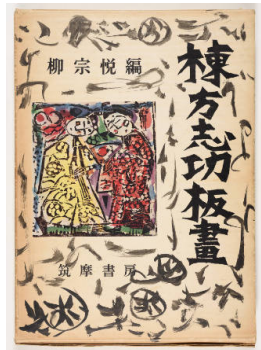 棟方志功板畫
柳宗悦編
筑摩書房